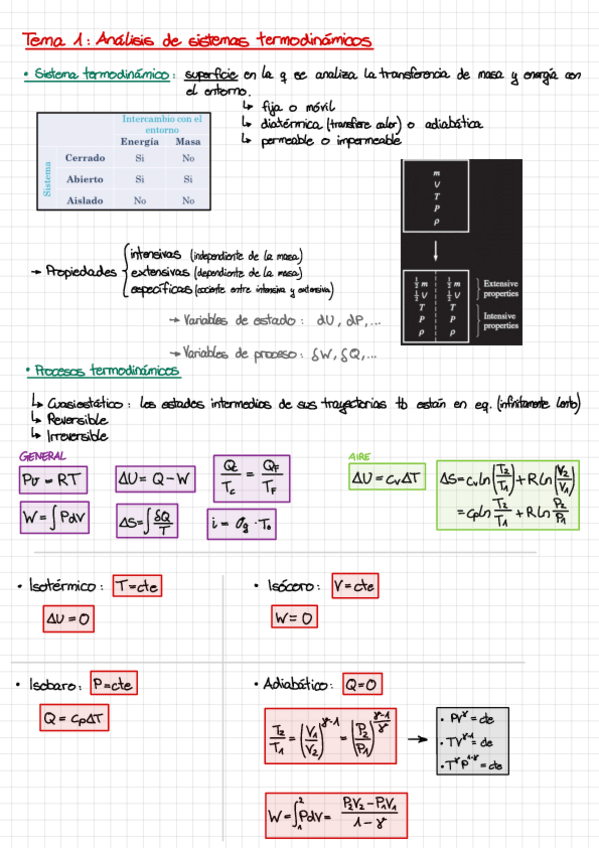 Tema 1: Análisis de sistemas termodinámicos
• Sistema termodinámico: superficie en la q se analiza la transferencia de masa y energía con
el entorno.
↳ fija o móvil
↳ diatérmica (transfiere calor) o adiabática
↳ permeable o impermeable
Intercambio con el
entorno
Energía Masa
Sistema
Cerrado Si No
Abierto Si Si
Aislado No No
m
V
T
P
ρ
½ m ½ m
½ V ½ V
T T
P P
ρ ρ
Extensive
properties
Intensive
properties
→ Propiedades
intensivas (independiente de la masa)
extensivas (dependiente de la masa)
específicas (cociente entre intensiva y extensiva)
→ Variables de estado: dU, dP,...
→ Variables de proceso: δW, δQ,...
• Procesos termodinámicos
↳ Cuasiestático: los estados intermedios de sus trayectorias tb están en eq. (infinitamente lento)
↳ Reversible
↳ Irreversible
GENERAL
Pv = RT
ΔU = Q - W
Qc/Tc = QF/TF
W = ∫ PdV
ΔS = ∫ δQ/T
i = σg · T₀
AIRE
ΔU = cvΔT
ΔS = cv ln(T2/T1) + R ln(V2/V1)
= cp ln T2/T1 + R ln P2/P1
• Isotérmico: T = cte
ΔU = 0
• Isócoro: V = cte
W = 0
• Isobaro: P = cte
Q = cpΔT
• Adiabático: Q = 0
T2/T1 = (V1/V2)^(γ-1) = (P2/P1)^((γ-1)/γ) →
• PV^γ = cte
• TV^(γ-1) = cte
• T^γ P^(1-γ) = cte
W = ∫₁² PdV = (P2V2 - P1V1)/(1 - γ)